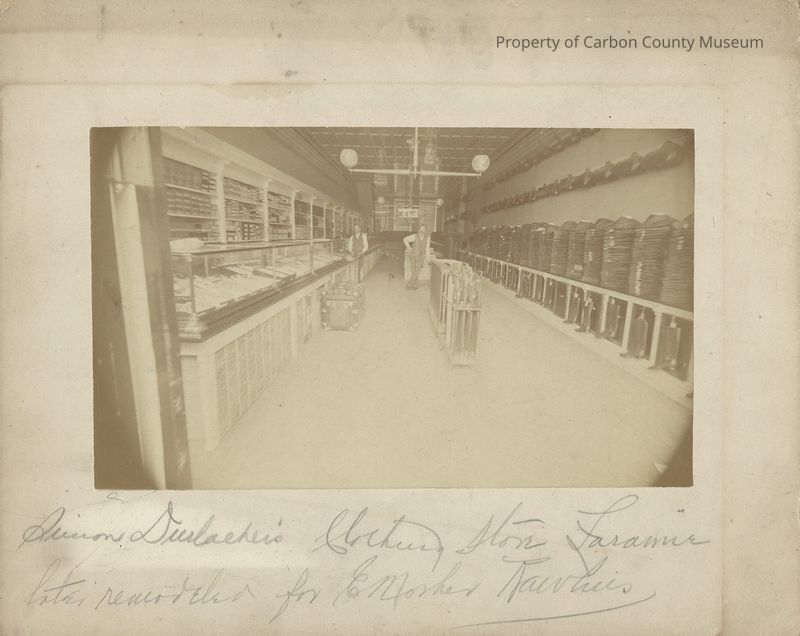 Property of Carbon County Museum
Simon Durlacher's Clothing Store Laramie
later remodeled for E Mosher Rawlins